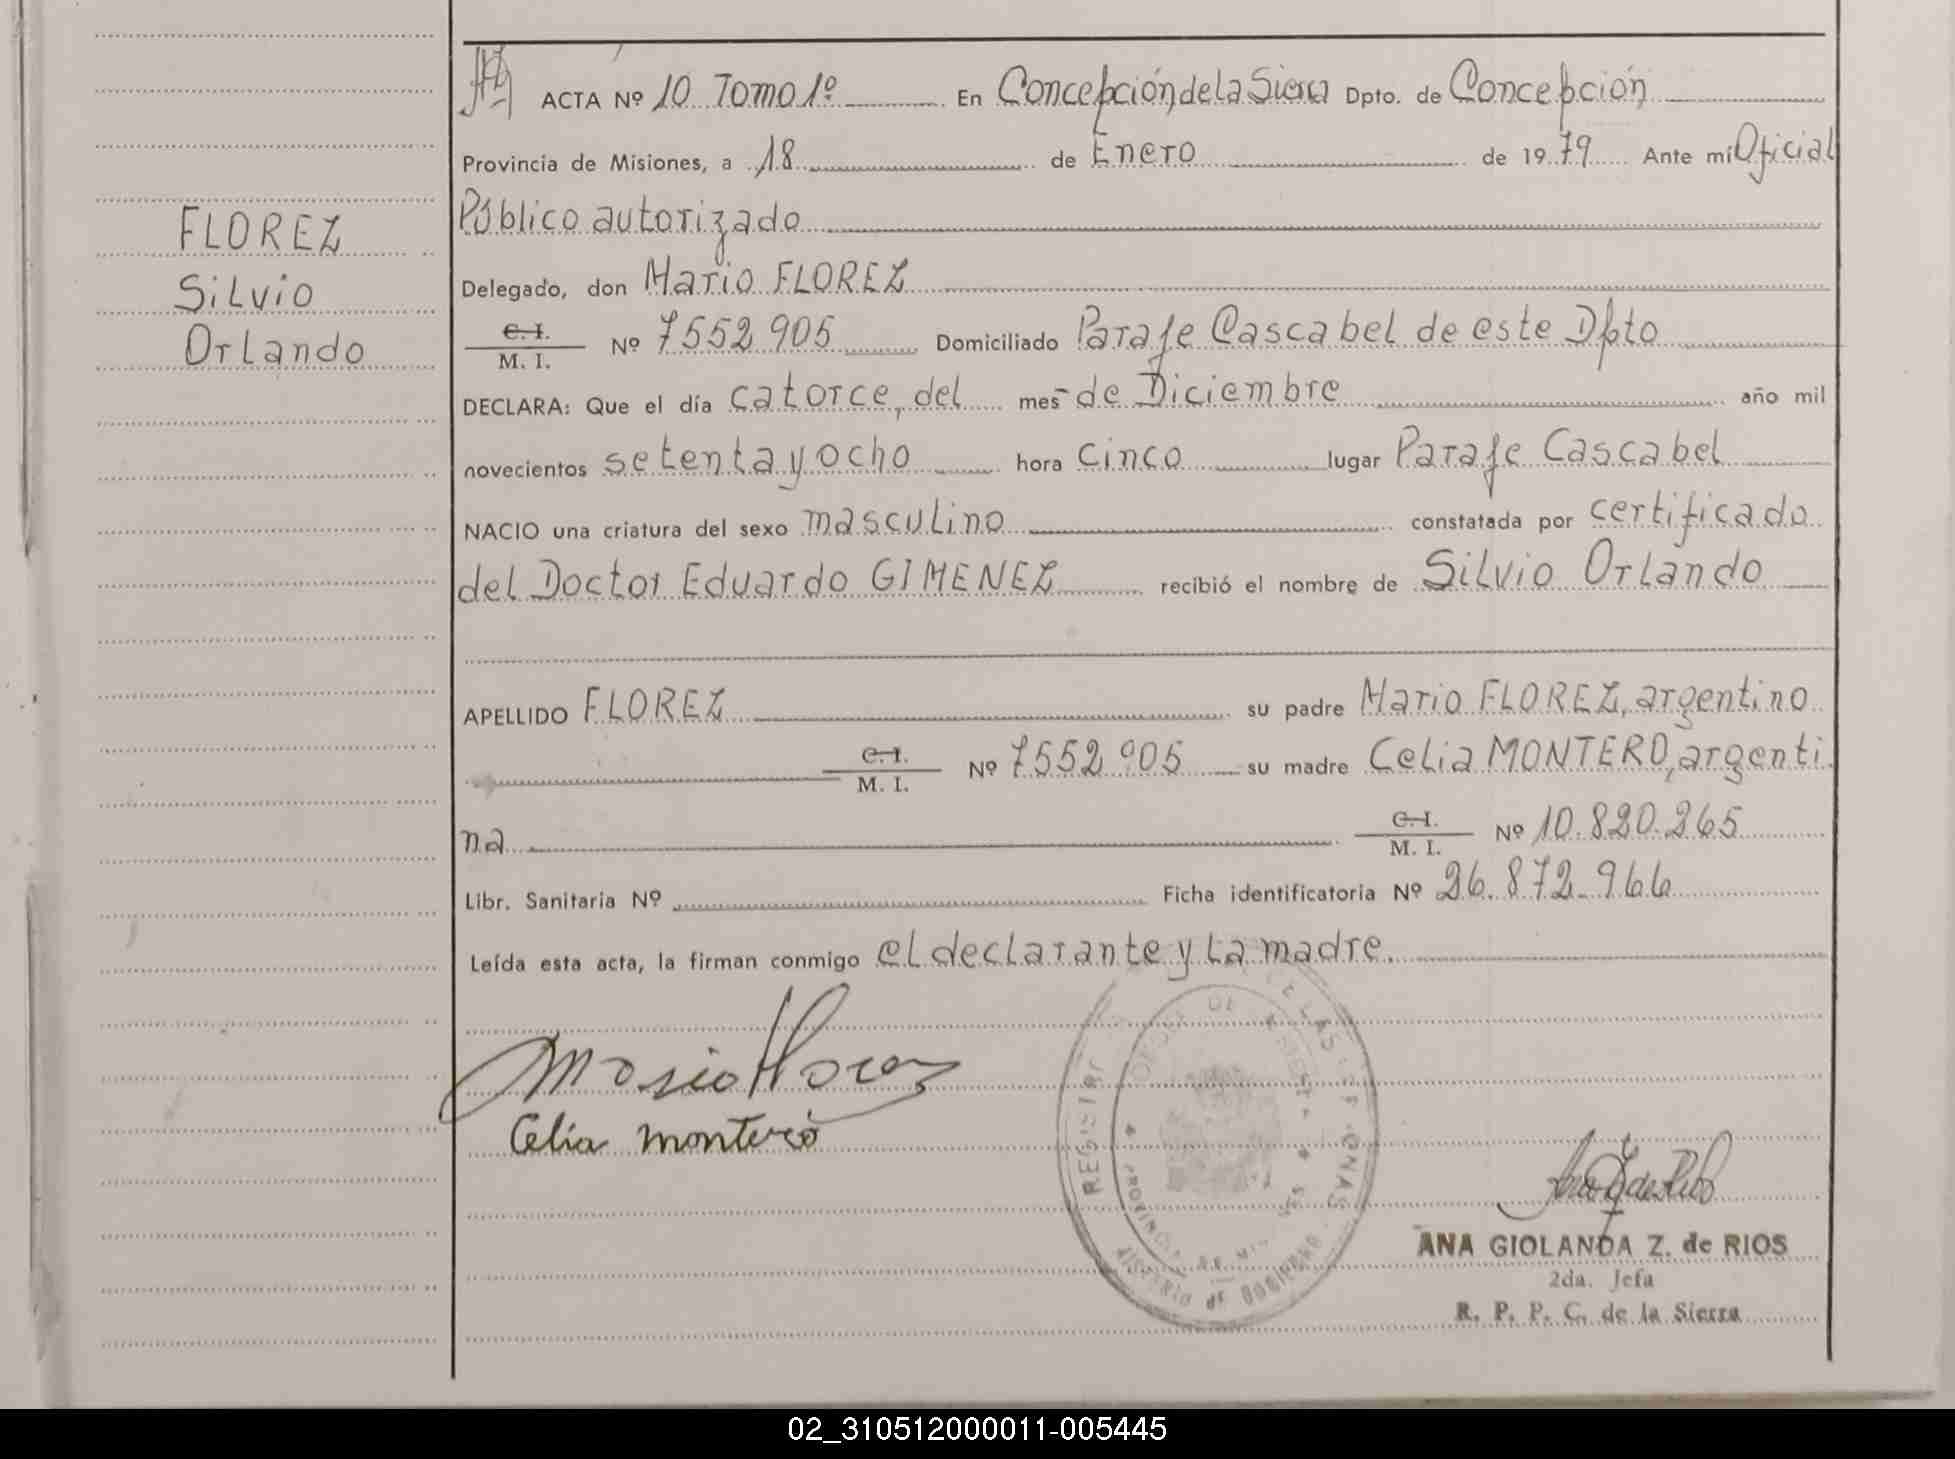 ACTA Nº 10 Tomo 1º En Concepción de la Sierra Dpto. de Concepción
Provincia de Misiones, a 18 de Enero de 1979 Ante mí Oficial
Público autorizado
Delegado, don Mario FLOREZ
C. I. M. I. Nº 7552905 Domiciliado Paraje Cascabel de este Dpto
DECLARA: Que el día catorce, del mes de Diciembre año mil
novecientos setenta y ocho hora cinco lugar Paraje Cascabel
NACIO una criatura del sexo masculino constatada por certificado
del Doctor Eduardo GIMENEZ recibió el nombre de Silvio Orlando
APELLIDO FLOREZ su padre Mario FLOREZ, argentino
C. I. M. I. Nº 7552905 su madre Celia MONTERO, argenti
na C. I. M. I. Nº 10.820.265
Libr. Sanitaria Nº Ficha identificatoria Nº 26.872.966
Leída esta acta, la firman conmigo el declarante y la madre.
FLOREZ
Silvio
Orlando
Mario Florez
Celia montero
REGISTRO DE LAS PERSONAS
PROVINCIA DE MISIONES
DE GOBIERNO
ANA GIOLANDA Z. de RIOS
2da. Jefa
R. P. P. C. de la Sierra
02_310512000011-005445